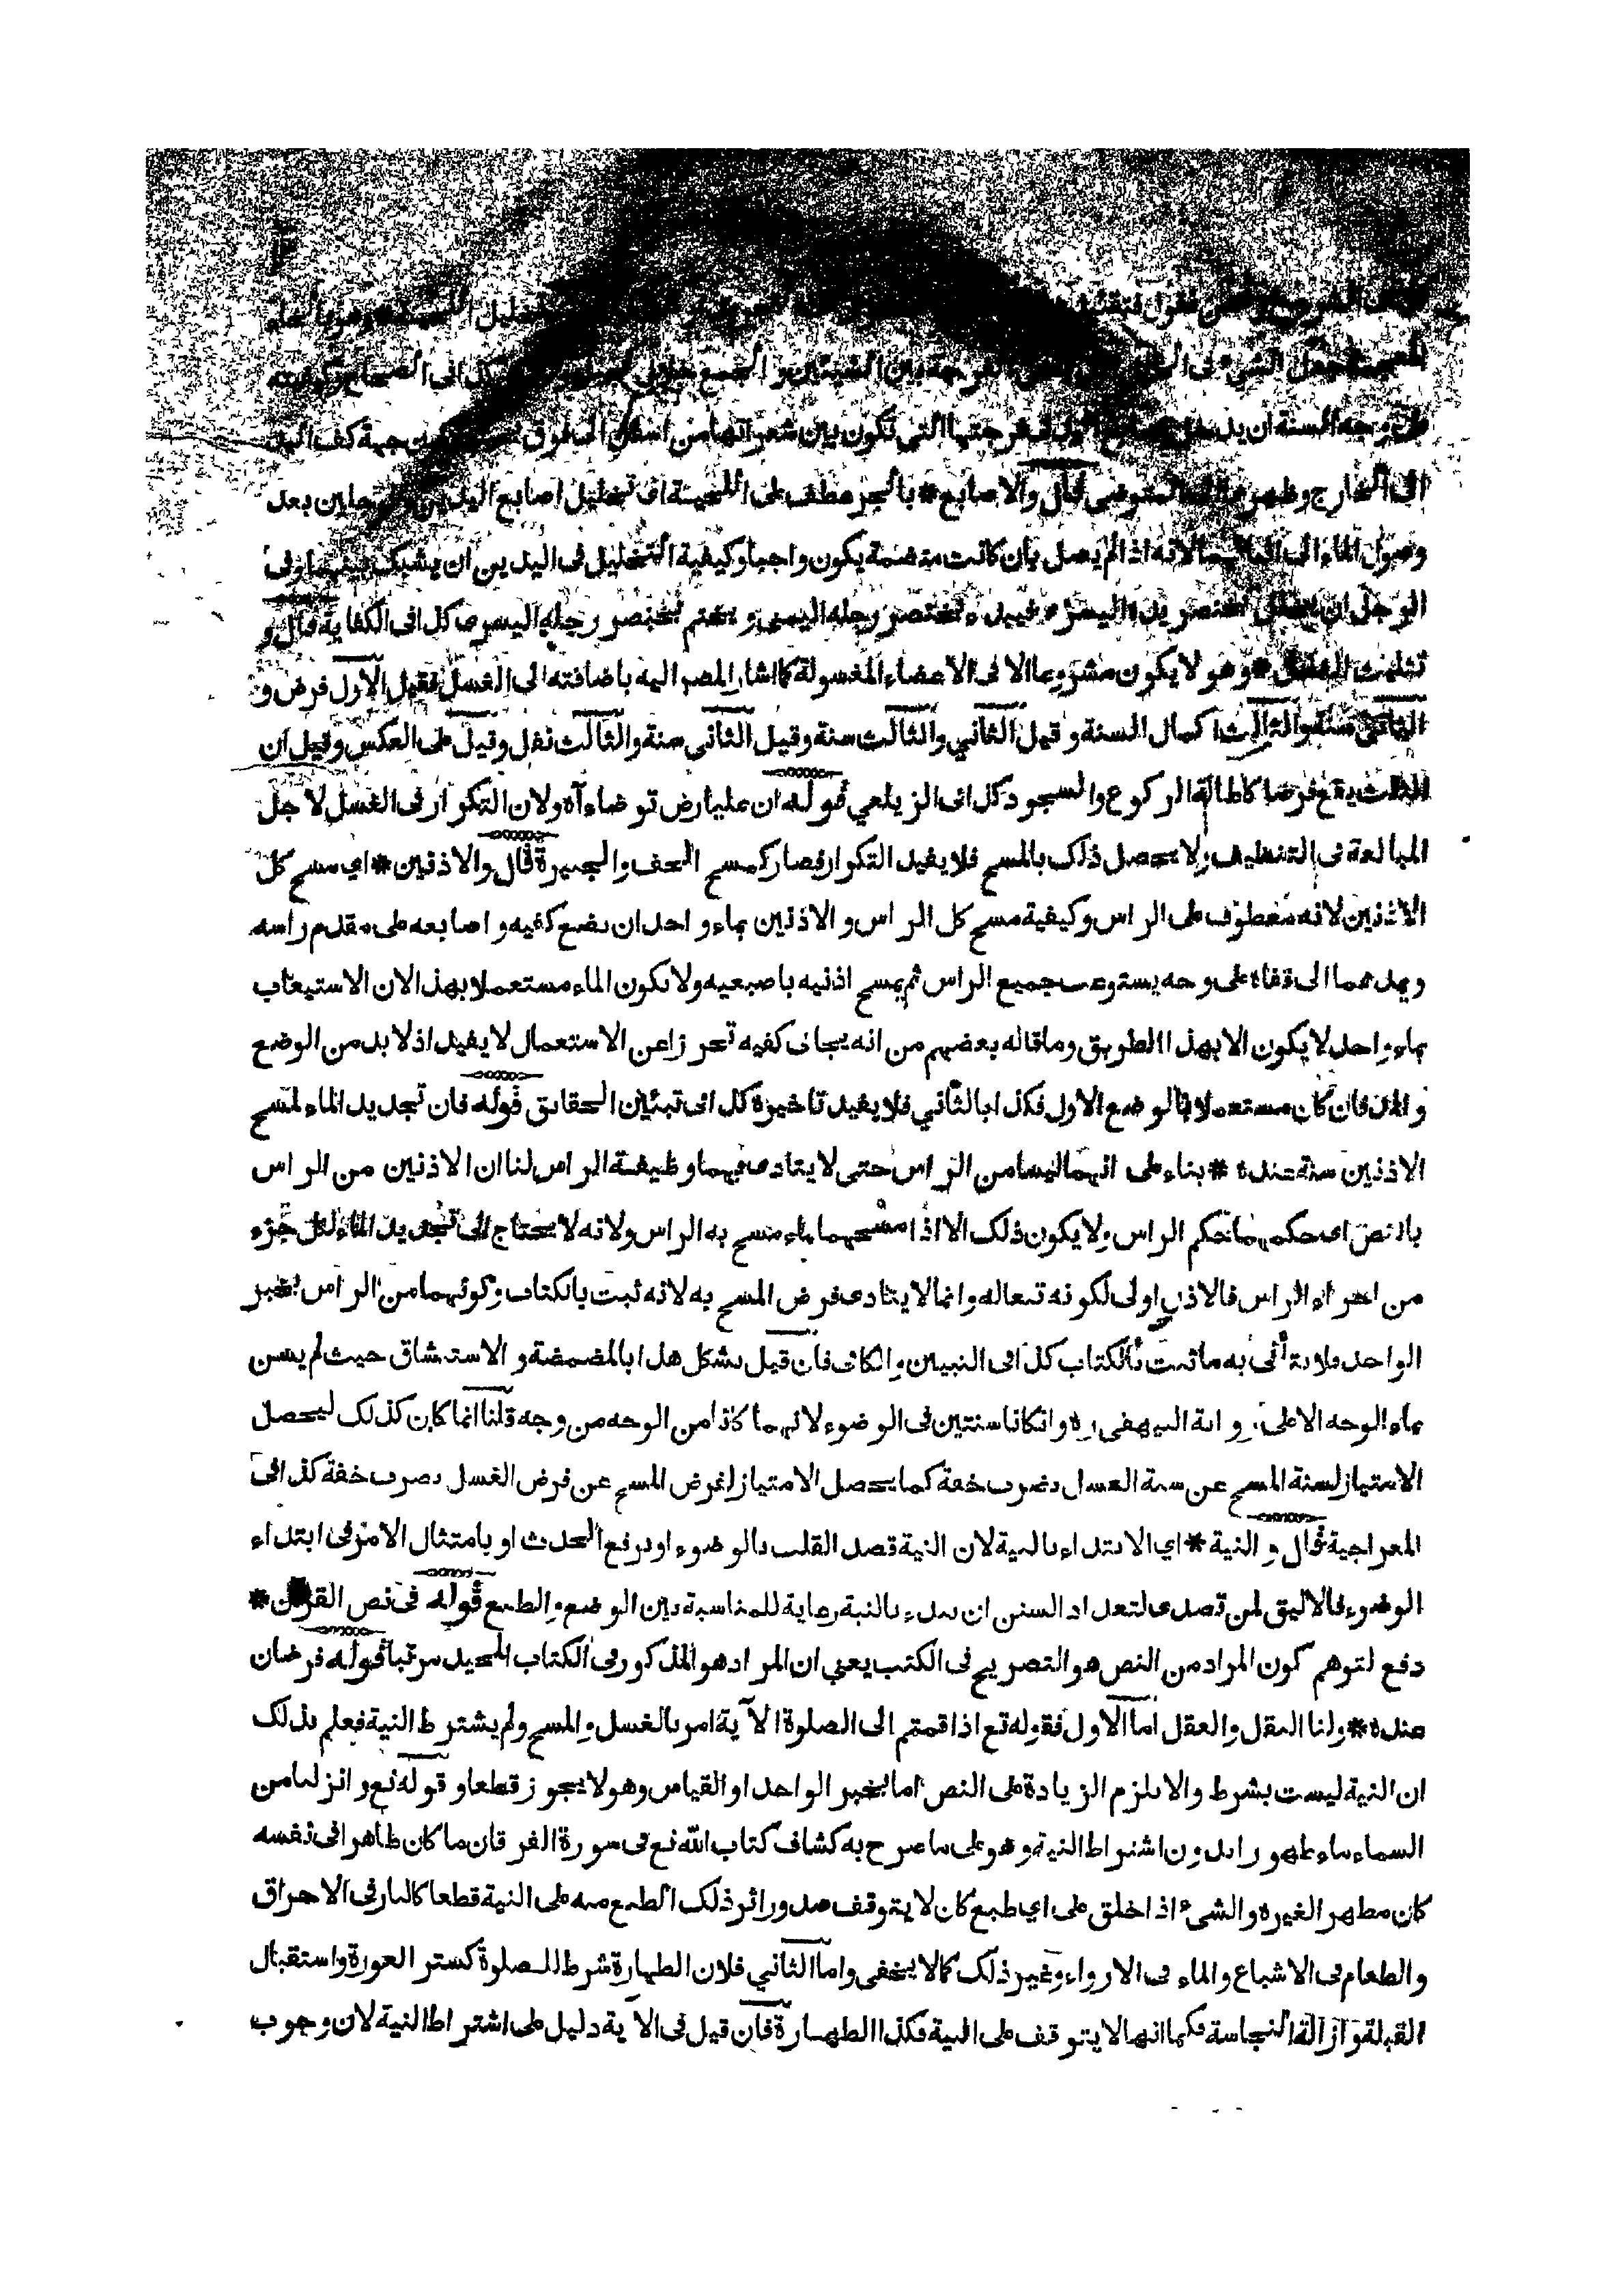 تخليل
جعل الشيء في بين الشيئين و الجمع كذا في الصحاح وكيفيته
على وجه السنة ان فرجتها التي تكون بين شعراتها من اسفل الى فوق جهة كف اليد
الى الخارج وظهرها قال والاصابع * بالجر عطف على اللحية اي تخليل اصابع اليدين والرجلين بعد
وصول الماء الى لانه اذا لم يصل بان كانت منضمة يكون واجبا وكيفية التخليل في اليدين ان يشبك بينهما وفي
الرجل ان يخلل بخنصر يده اليسرى فيبدء بخنصر رجله اليمنى و يختم بخنصر رجله اليسرى كذا في الكفاية قال و
تثليث الغسل * وهو لا يكون مشروعا الا في الاعضاء المغسولة كما اشار المصر اليه باضافته الى الغسل فقيل الاول فرض و
الثاني سنة والثالث اكمال السنة و قيل الثاني والثالث سنة وقيل الثاني سنة والثالث نفل وقيل على العكس وقيل ان
الثالث يقع فرضا كاطالة الركوع والسجود كذا في الزيلعي قوله ان عليا رض توضاء آه ولان التكرار في الغسل لاجل
المبالغة في التنظيف ولا يحصل ذلك بالمسح فلا يفيد التكرار فصار كمسح الخف والجبيرة قال والاذنين * اي مسح كل
الاذنين لانه معطوف على الراس وكيفية مسح كل الراس و الاذنين بماء و احد ان يضع كفيه و اصابعه على مقدم راسه
ويمدهما الى قفاه على وجه يستوعب جميع الراس ثم يمسح اذنيه باصبعيه ولا يكون الماء مستعملا بهذا لان الاستيعاب
بماء واحد لا يكون الا بهذا الطريق وما قاله بعضهم من انه يجافى كفيه تحرزا عن الاستعمال لا يفيد اذ لا بد من الوضع
و المد فان كان مستعملا بالوضع الاول فكذا بالثاني فلا يفيد تاخيره كذا في تبيين الحقايق قوله فان تجديد الماء لمسح
الاذنين سنة عنده * بناء على انهما ليسا من الراس حتى لا يتادى بهما وظيفة الراس لنا ان الاذنين من الراس
بالنص اي حكمهما حكم الراس ولا يكون ذلك الا اذا مسحهما بماء مسح به الراس ولانه لا يحتاج الى تجديد الماء لكل جزء
من اجزاء الراس فالاذن اولى لكونه تبعا له وانما لا يتادى فرض المسح به لانه ثبت بالكتاب وكونهما من الراس بخبر
الواحد فلا يتادى به ما ثبت بالكتاب كذا في التبيين و الكافي فان قيل يشكل هذا بالمضمضة و الاستنشاق حيث لم يسن
بماء الوجه الا على رواية البيهقي ره وان كانا سنتين في الوضوء لانهما كانا من الوجه من وجه قلنا انما كان كذلك ليحصل
الامتياز لسنة المسح عن سنة الغسل بضرب خفة كما يحصل الامتياز لفرض المسح عن فرض الغسل بضرب خفة كذا في
المعراجية قال و النية * اي الابتداء بالنية لان النية قصد القلب بالوضوء او برفع الحدث او بامتثال الامر في ابتداء
الوضوء فالاليق لمن تصدى لتعداد السنن ان يبدء بالنية رعاية للمناسبة بين الوضع و الطبع قوله في نص القرآن *
دفع لتوهم كون المراد من النص هو التصريح في الكتب يعني ان المراد هو المذكور في الكتاب المجيد مرتبا قوله فرضان
عنده * ولنا النقل والعقل اما الاول فقوله تع اذا قمتم الى الصلوة الآية امر بالغسل والمسح ولم يشترط النية فعلم بذلك
ان النية ليست بشرط والا يلزم الزيادة على النص اما بخبر الواحد او القياس وهو لا يجوز قطعا و قوله تع و انزلنا من
السماء ماء طهورا بدون اشتراط النية وهو على ما صرح به كشاف كتاب الله تع في سورة الفرقان ما كان طاهرا في نفسه
كان مطهرا لغيره والشيء اذا خلق على اي طبع كان لا يتوقف صدور اثر ذلك الطبع منه على النية قطعا كالنار في الاحراق
والطعام في الاشباع والماء في الارواء وغير ذلك كما لا يخفى واما الثاني فلان الطهارة شرط للصلوة كستر العورة واستقبال
القبلة و ازالة النجاسة فكما انها لا يتوقف على النية فكذا الطهارة فان قيل في الآية دليل على اشتراط النية لان وجوب